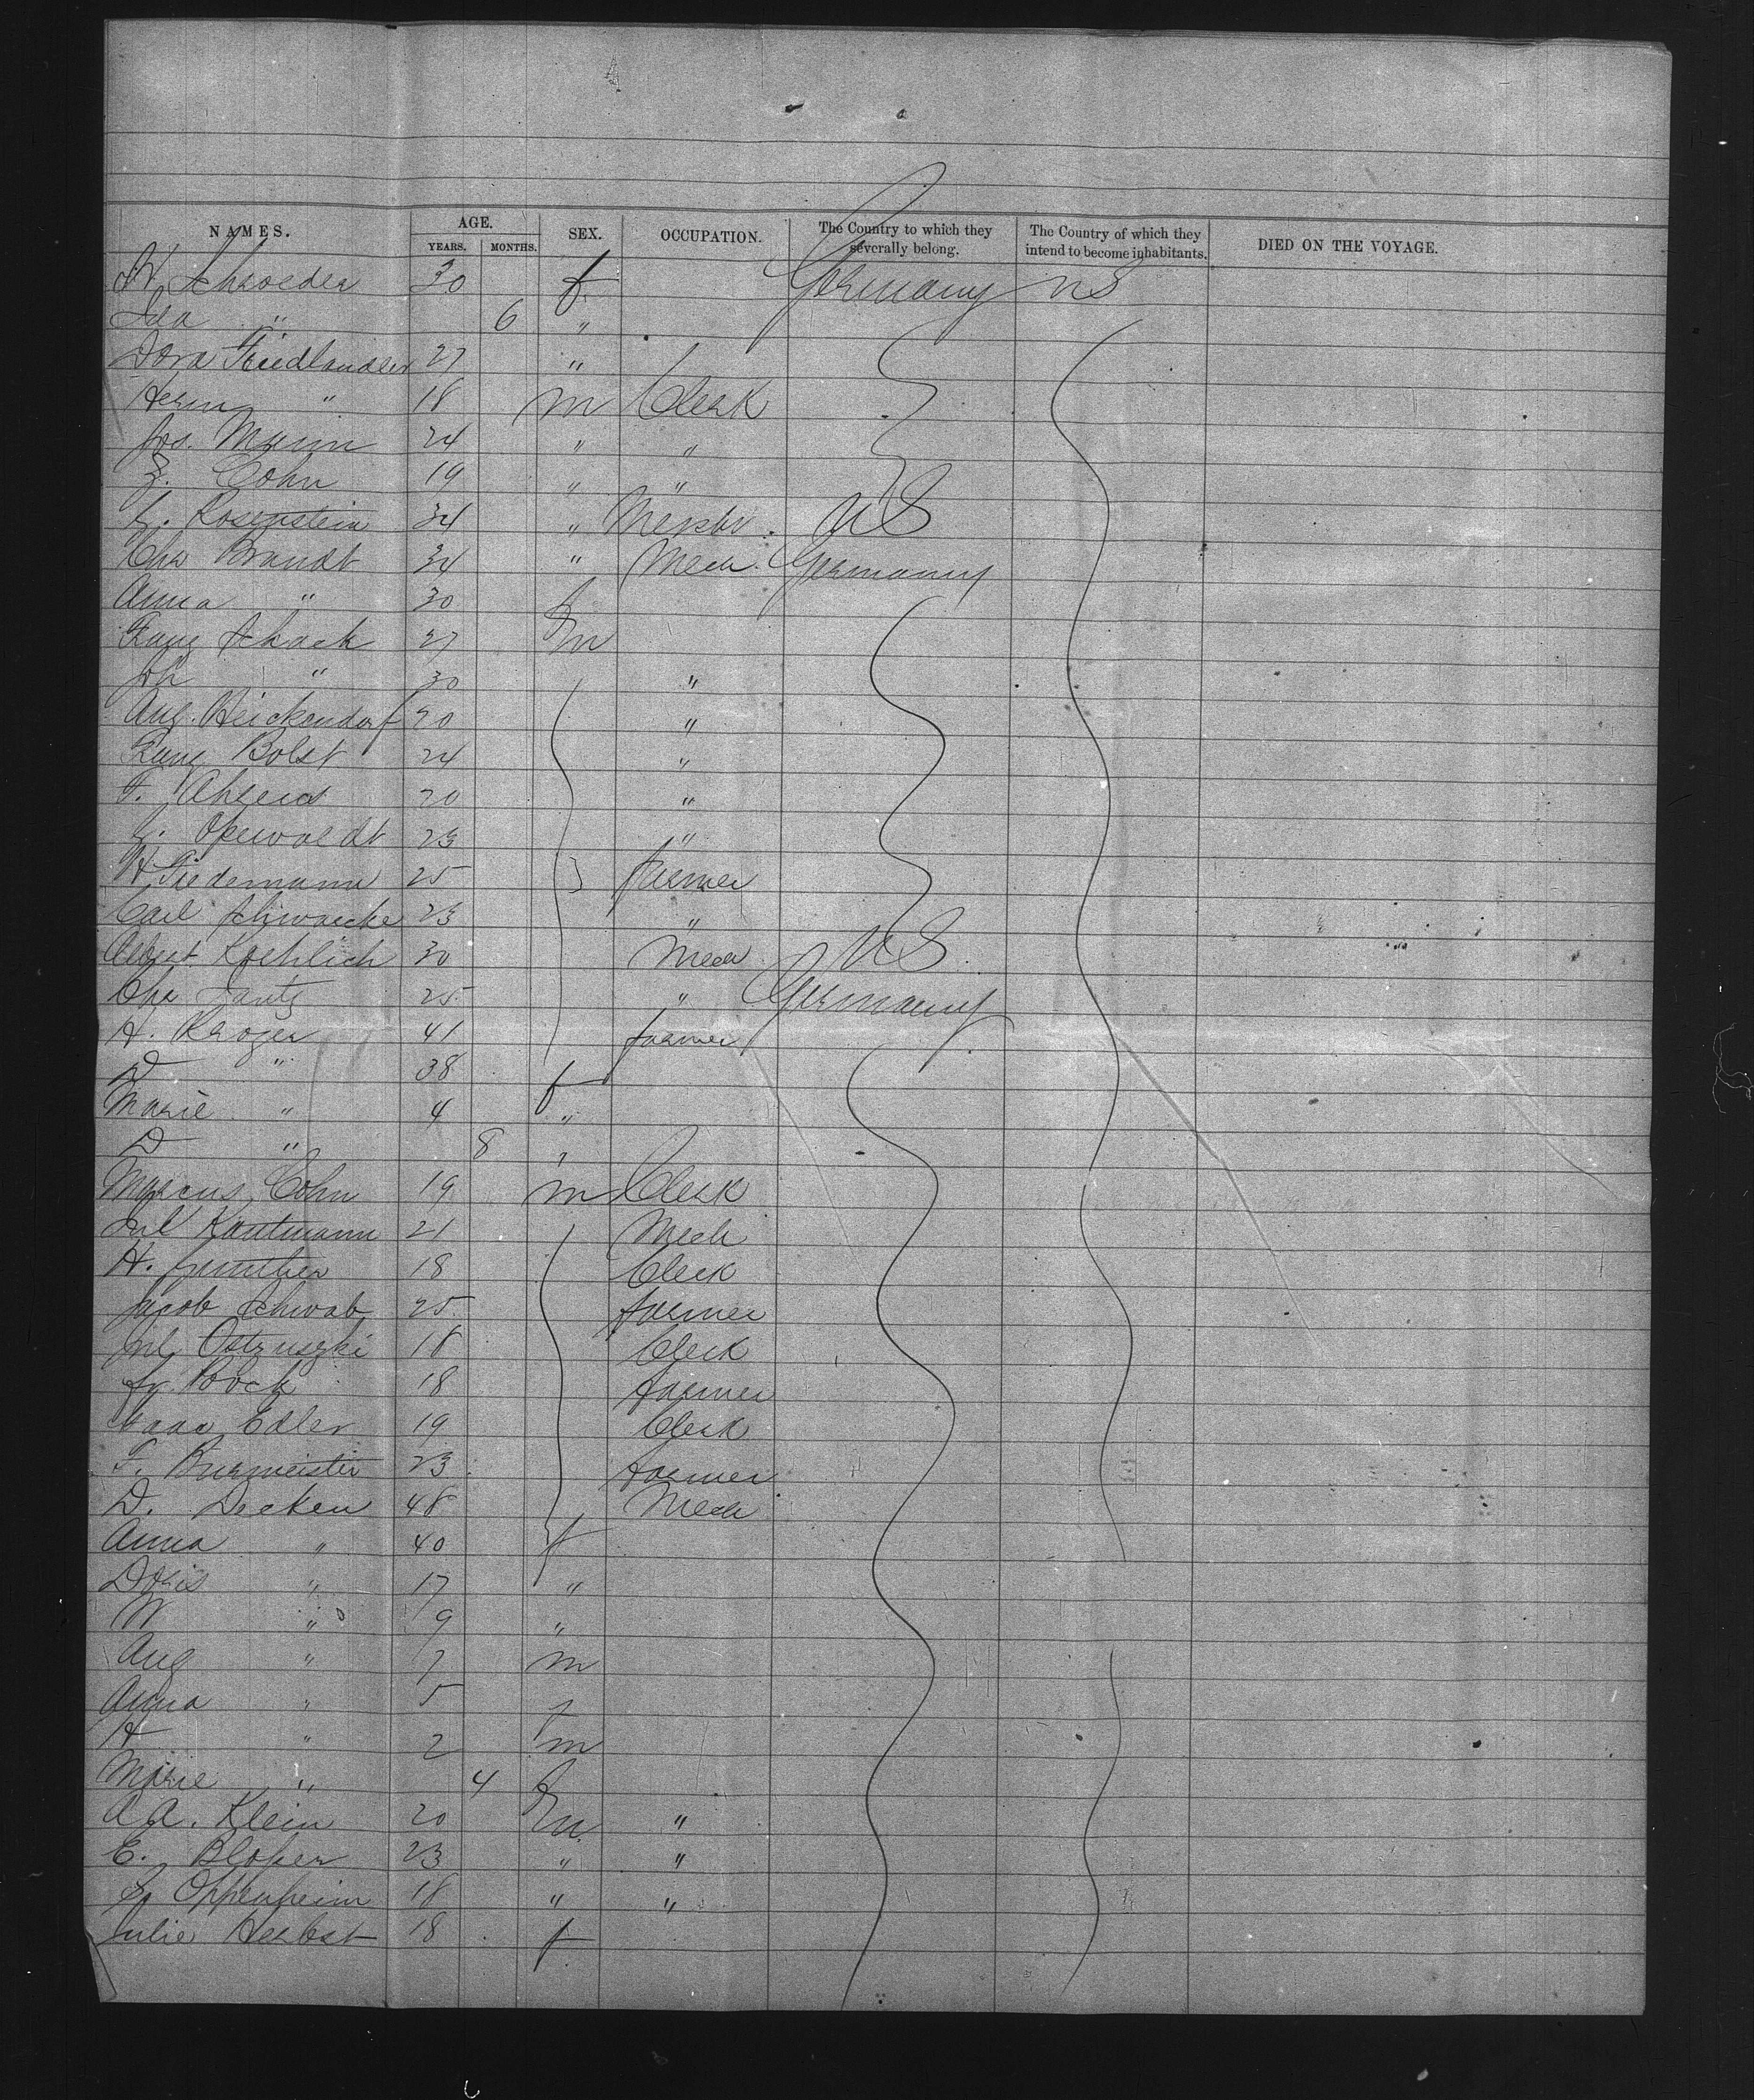 NAMES. AGE. YEARS. MONTHS. SEX. OCCUPATION. The Country to which they severally belong. The Country of which they intend to become inhabitants. DIED ON THE VOYAGE.
W Schroeder 30 f Germany US
Ida " 6 "
Dora Friedlander 27 "
Herm " 18 m Clerk
Jos. Mann 24 " "
Z. Cohn 19 " "
Rosenstein 34 " Merchr. US
Chs Brandt 34 " Mech. Germany
Anna " 30 f
Schack 27 m
Joh " 30 "
Aug. Heickendorf 20 "
Bolst 24 "
F. Ahrens 20 "
23 "
H Tiedemann 25 farmer
Carl Schwarcke 23 "
Albert Koehlich 30 Mech US
Chs Jantz 25 " Germany
H. Kroger 41 farmer
D " 38 f
Marie " 4 "
D " 8 "
Marcus Cohn 19 m Clerk
Jul Kautmann 21 Mech
H. Gunther 18 Clerk
Jacob Schwab 25 farmer
Jul 18 Clerk
Fr. Bock 18 farmer
Isaac Edler 19 Clerk
F. Burmeister 23 farmer
D. Decken 48 Mech
Anna " 40 f
Doris " 17 "
W " 9 "
Aug " 7 m
Anna " 5 f
H " 2 m
Marie " 4 f
A A. Klein 20 m "
E. Bloher 23 " "
S. Oppenheim 18 " "
Julie Herbst 18 f